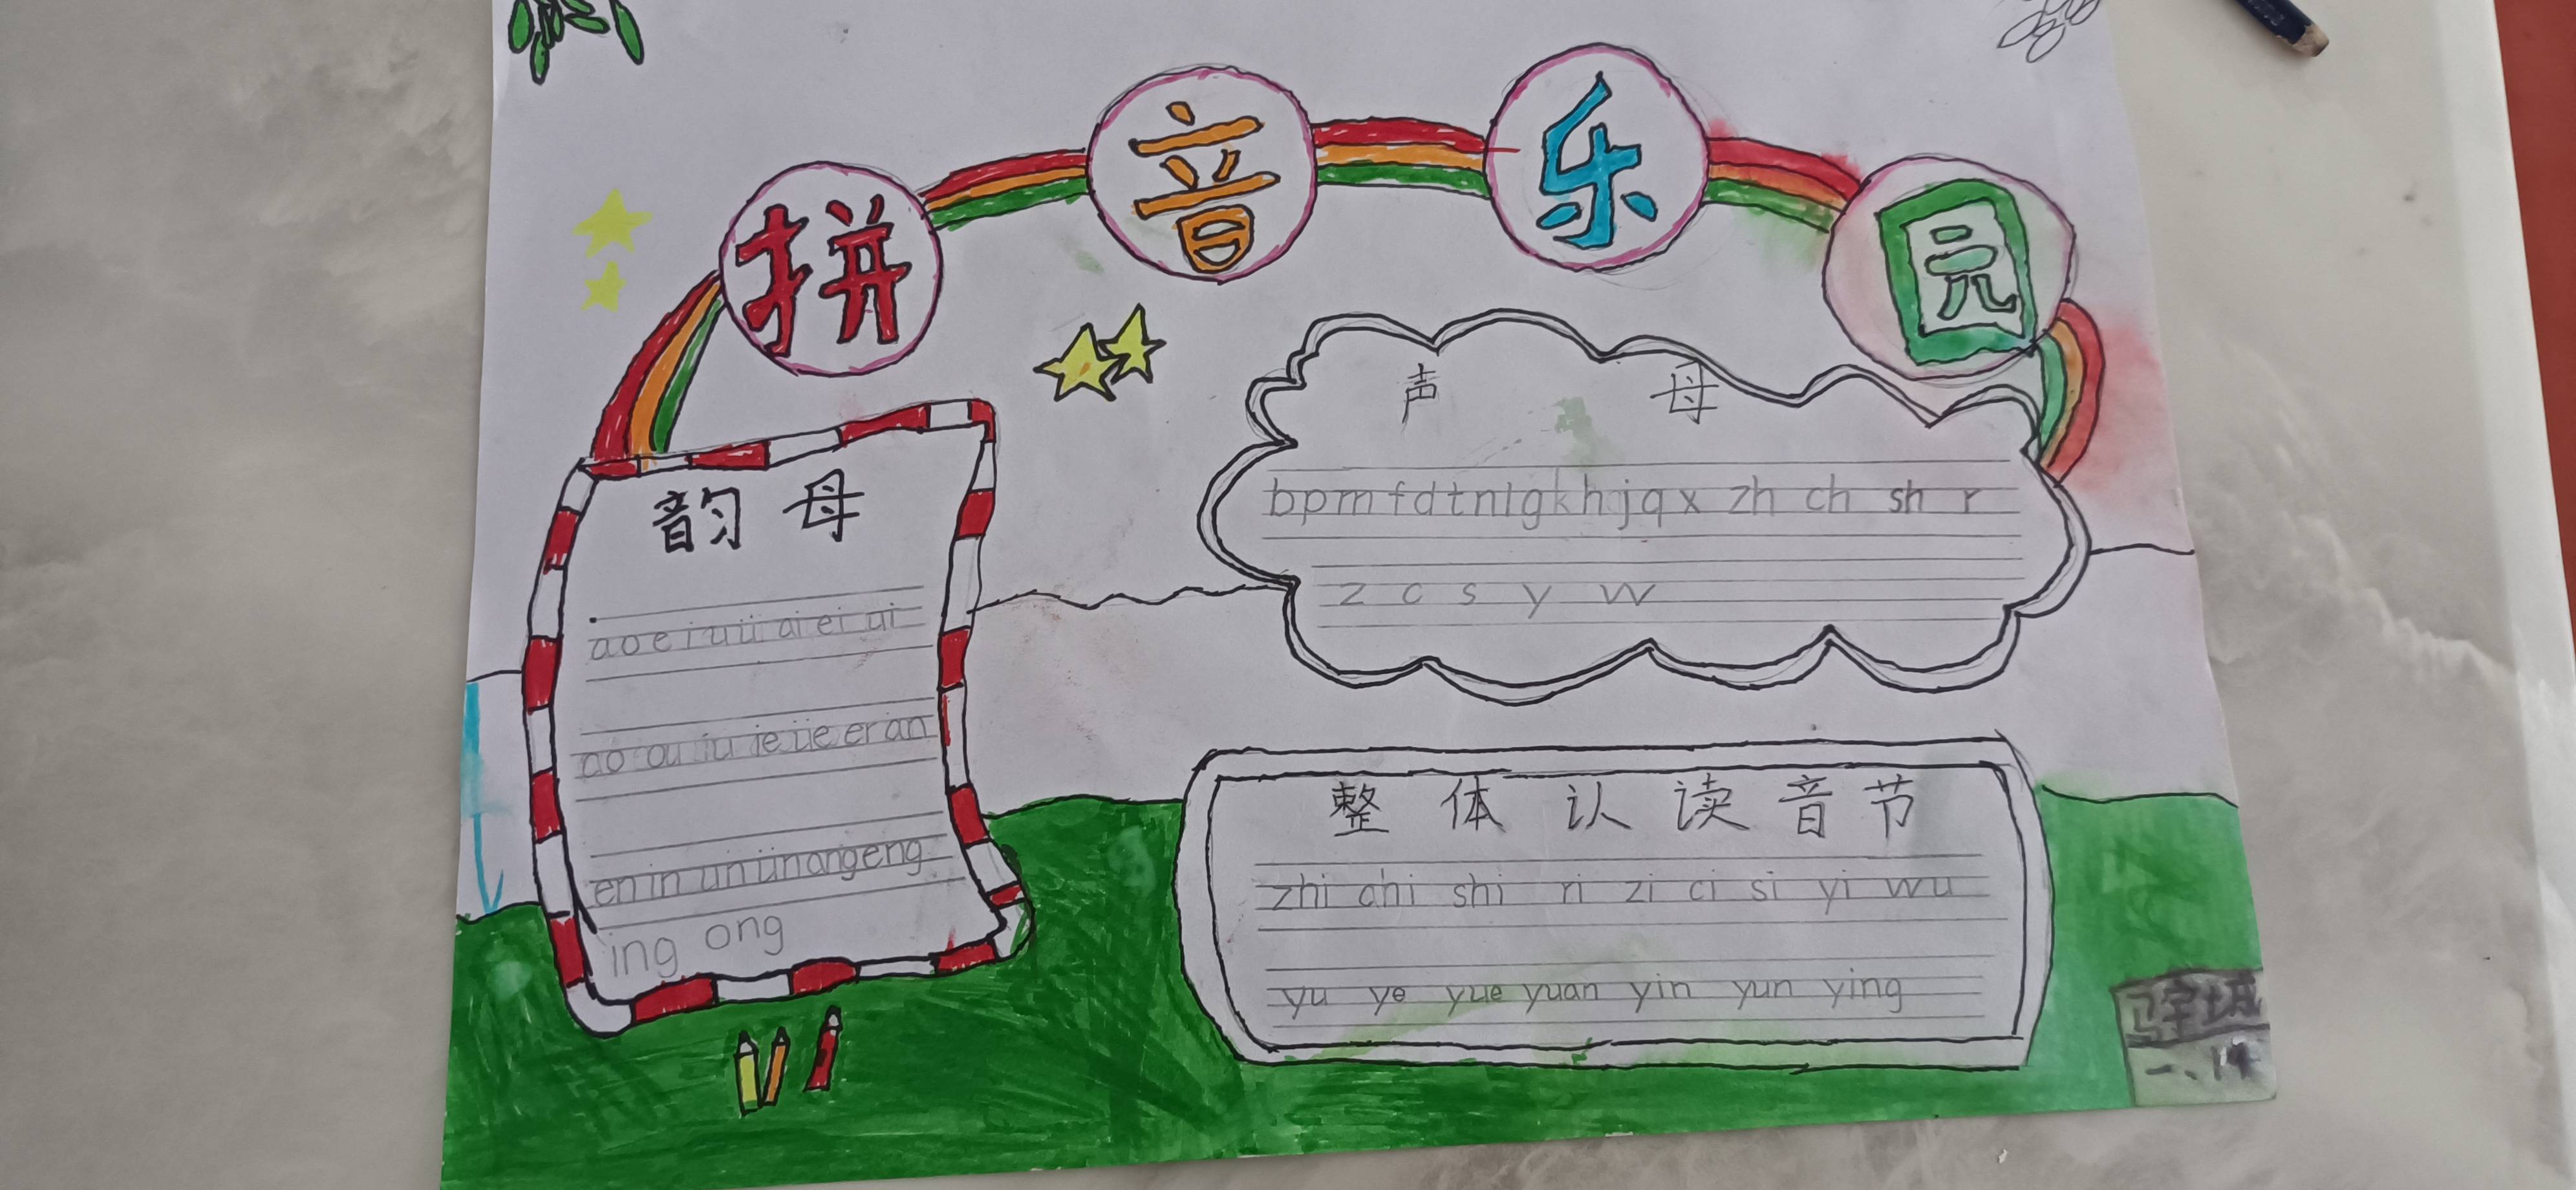 拼音乐园
韵母
a o e i u ü ai ei ui
ao ou iu ie üe er an
en in un ün ang eng
ing ong
声母
b p m f d t n l g k h j q x zh ch sh r
z c s y w
整体认读音节
zhi chi shi ri zi ci si yi wu
yu ye yue yuan yin yun ying